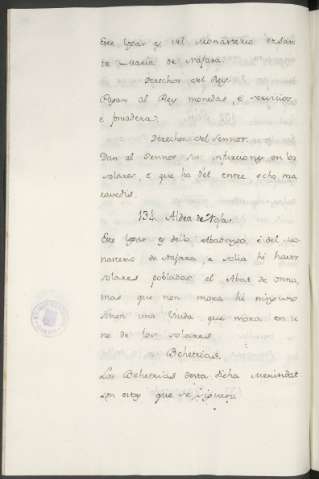 Este lugar es del Monasterio de San
ta Maria de Najara.
Derechos del Rey.
Pagan al Rey monedas, e servicios,
e fonsadera.
Derechos del Sennor.
Dan al Sennor su infurcion en los
solares, e que ha del entre ocho ma
ravedis.
134. Aldea de
Este lugar es dello Abadengo, e del mo
nasterio de Najara, e solia hi haver
solares poblados el Abat de Onna,
mas que non mora hi ninguno
sinon una Viuda que mora en u
no de los solares.
Behetrias.
Las Behetrias desta dicha Merindat
son estas que se siguen.